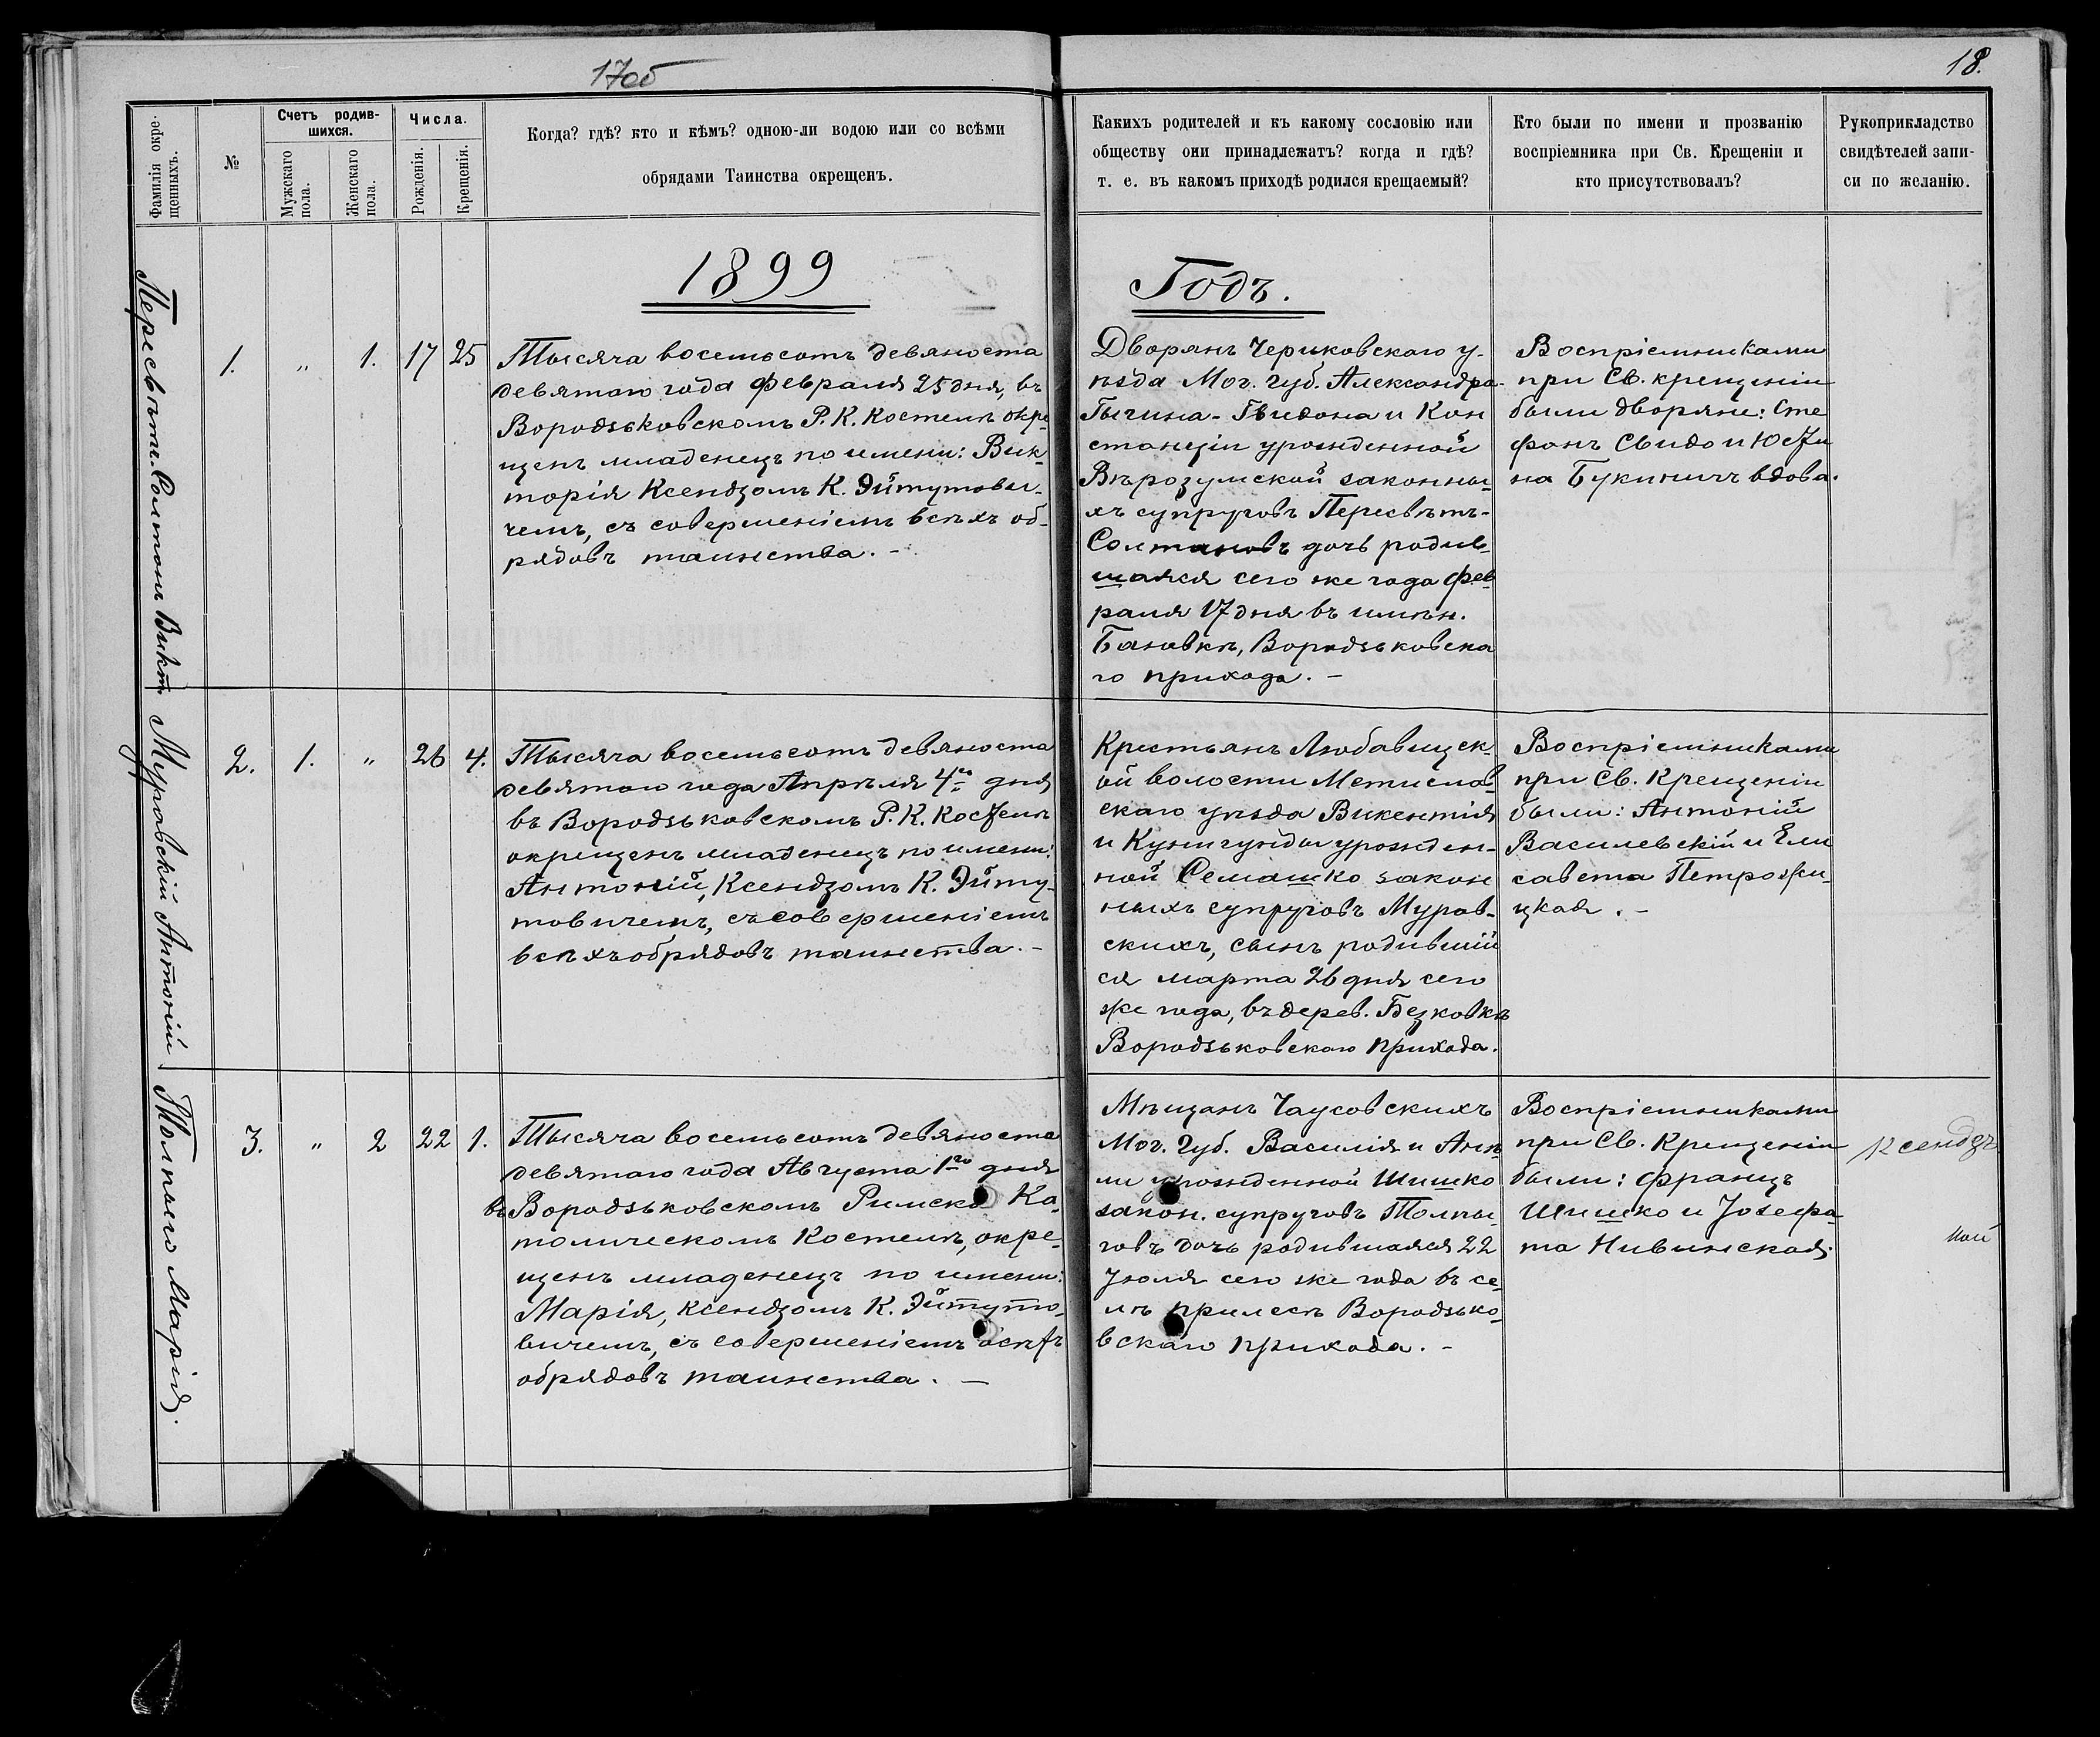 17об
18.
Фамилія окре-
щенныхъ.
№
Счетъ родив-
шихся.
Мужскаго
пола.
Женскаго
пола.
Числа.
Рожденія.
Крещенія.
Когда? гдѣ? кто и кѣмъ? одною-ли водою или со всѣми
обрядами Таинства окрещенъ.
Какихъ родителей и къ какому сословію или
обществу они принадлежатъ? когда и гдѣ?
т. е. въ какомъ приходѣ родился крещаемый?
Кто были по имени и прозванію
воспріемника при Св. Крещеніи и
кто присутствовалъ?
Рукоприкладство
свидѣтелей запи-
си по желанію.
1899
Годъ.
Пересвѣтъ-Солтанъ Викт.
1. " 1. 17 25
Тысяча восемьсотъ девяноста
девятаго года Февраля 25 дня, въ
Вородзьковскомъ Р. К. Костелѣ окре-
щенъ младенецъ по имени: Вик-
торія Ксендзомъ К. Эйтутови-
чемъ, съ совершеніемъ всѣхъ об-
рядовъ таинства. -
Дворянъ Чериковскаго у-
ѣзда Мог. губ. Александра-
Гигина-Гвидона и Кон
станціи урожденной
Вѣрозумской законны-
хъ супруговъ Пересвѣтъ-
Солтановъ дочь родив-
шаяся сего же года фев
раля 17 дня въ имѣн.
Бановкѣ, Вородзьковска
го прихода. -
Воспріемниками
при Св. крещеніи
были дворяне: Сте
фанъ Свидо и Юстзи
на Букиничъ вдова.
Муровскій Антоній.
2. 1. " 26 4.
Тысяча восемьсотъ девяноста
девятаго года Апрѣля 4го дня
въ Вородзьковскомъ Р. К. Костелѣ
окрещенъ младенецъ по имени:
Антоній, Ксендзомъ К. Эйту-
товичемъ, съ совершеніемъ
всѣхъ обрядовъ таинства. -
Крестьянъ Любавицск-
ой волости Мстислав-
скаго уѣзда Викентія
и Кунигунды урожден-
ной Семашко закон
ныхъ супруговъ Муров-
скихъ, сынъ родившій
ся марта 26 дня сего
же года, въ дерев. Безковкѣ
Вородзьковскаго прихода.
Воспріемниками
при Св. Крещеніи
были: Антоній
Василевскій и Ели
савета Петрожи-
цкая. -
Толпыго Марія.
3. " 2 22 1.
Тысяча восемьсотъ девяноста
девятаго года Августа 1го дня
въ Вородзьковскомъ Римско Ка-
толическомъ Костелѣ, окре-
щенъ младенецъ по имени:
Марія, ксендзомъ К. Эйтуто-
вичемъ, съ совершеніемъ всѣхъ
обрядовъ таинства. -
Мѣщанъ Чаусовскихъ
Мог. Губ. Василія и Анѣ
ли урожденной Шишко
закон. супруговъ Толпы-
говъ дочь родившаяся 22
Іюля сего же года въ се-
лѣ Прилесѣ Вородзько-
вскаго прихода. -
Воспріемниками
при Св. Крещеніи
были: Францъ
Шишко и Іозефа-
та Нивинская.
Ксендзъ